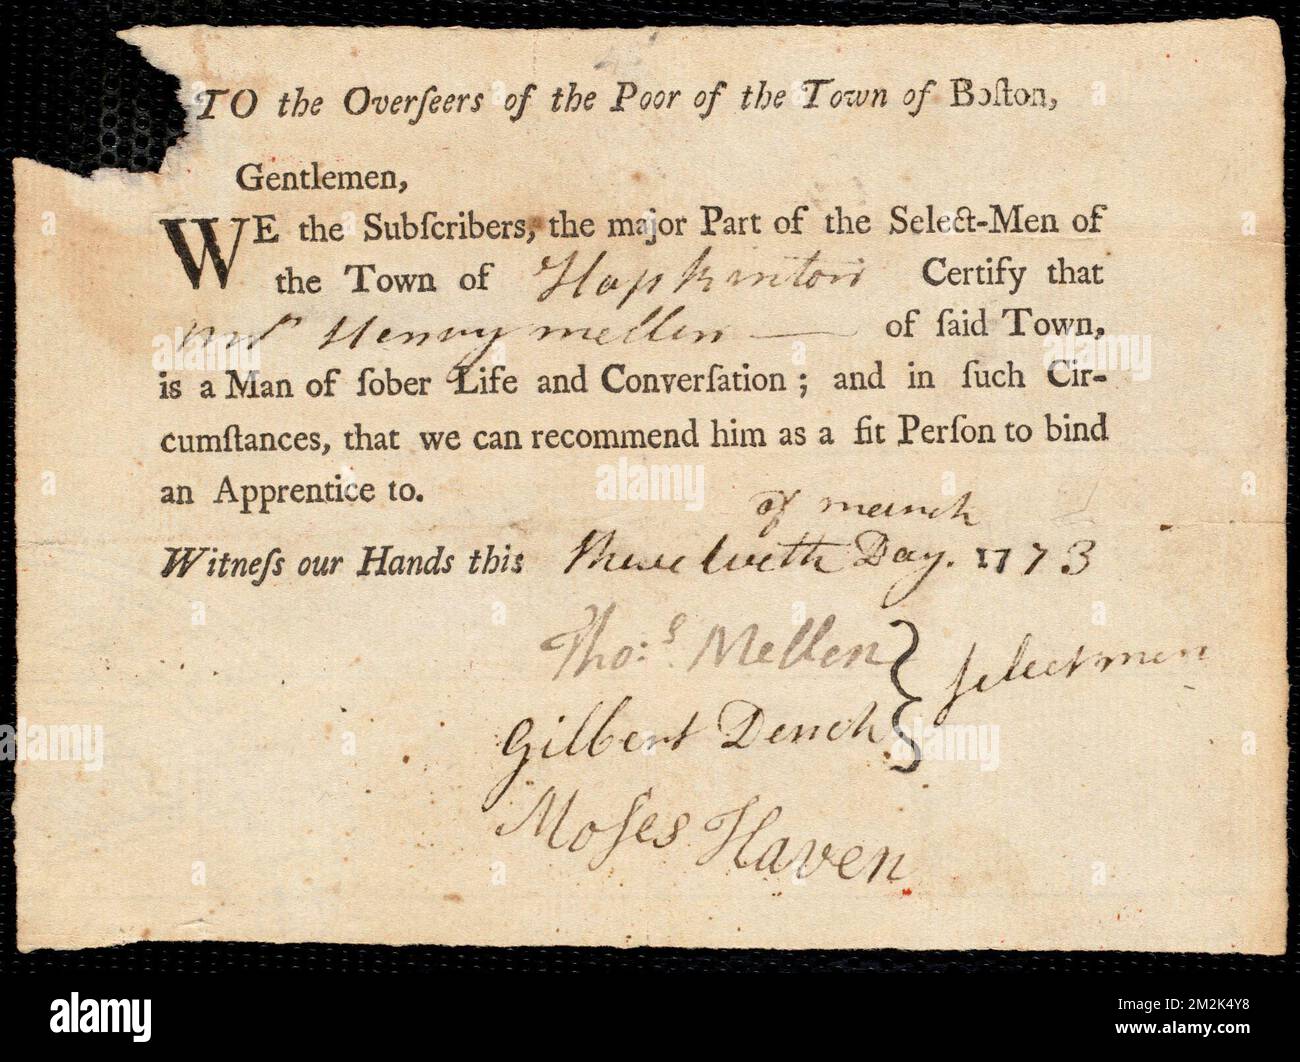 TO the Overſeers of the Poor of the Town of Boſton,
Gentlemen,
WE the Subſcribers, the major Part of the Select-Men of
the Town of Hopkinton Certify that
Mr Henry mellen — of ſaid Town,
is a Man of ſober Life and Converſation; and in ſuch Cir-
cumſtances, that we can recommend him as a fit Perſon to bind
an Apprentice to.
of march
Witneſs our Hands this thwelveth Day. 1773
Tho:s Mellen
Gilbert Dench } ſelectmen
Moſes Haven
alamy
alamy
Image ID: 2M2K4Y8
www.alamy.com